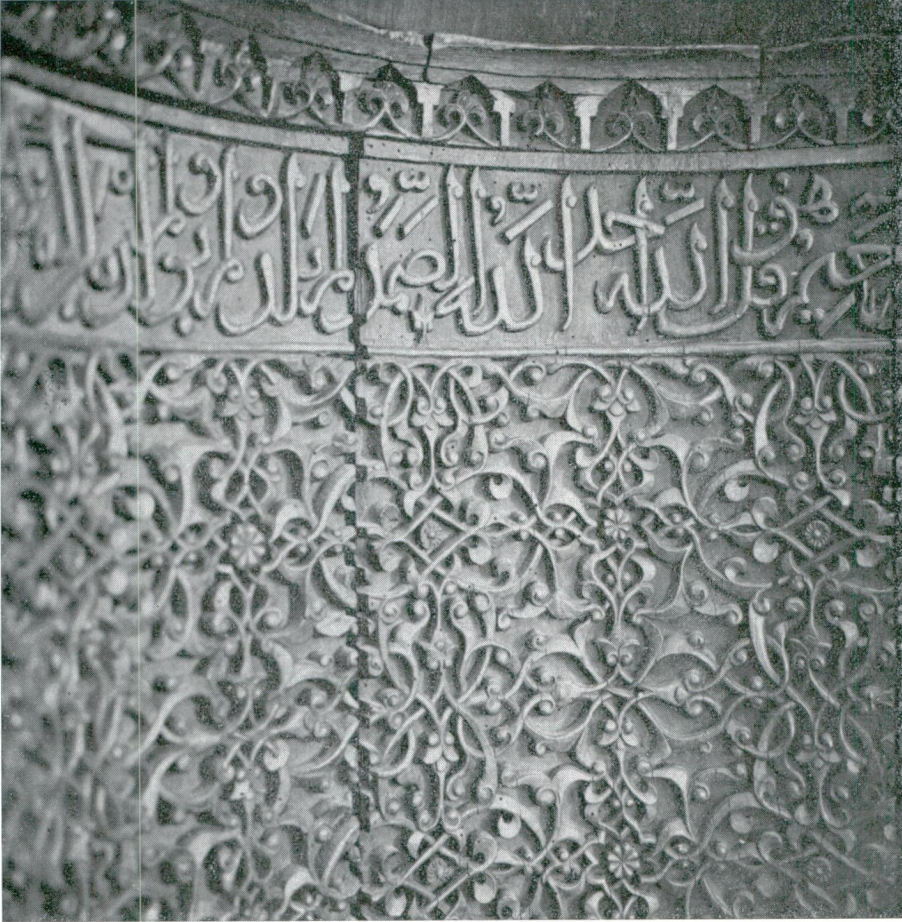 الرحيم قل هو الله احد الله الصمد لم يلد ولم يولد ولم يكن